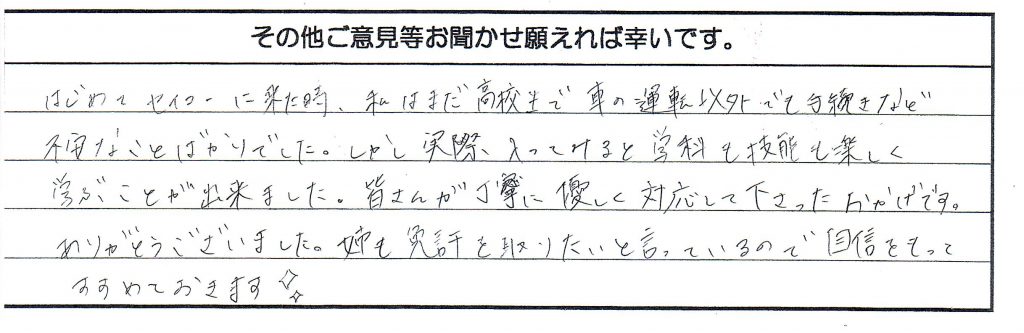 その他ご意見等お聞かせ願えれば幸いです。
はじめてセイコーに来た時、私はまだ高校生で車の運転以外でも手続きなど
不安なことばかりでした。しかし実際、入ってみると学科も技能も楽しく
学ぶことが出来ました。皆さんが丁寧に優しく対応して下さったおかげです。
ありがとうございました。姉も免許を取りたいと言っているので自信をもって
すすめておきます